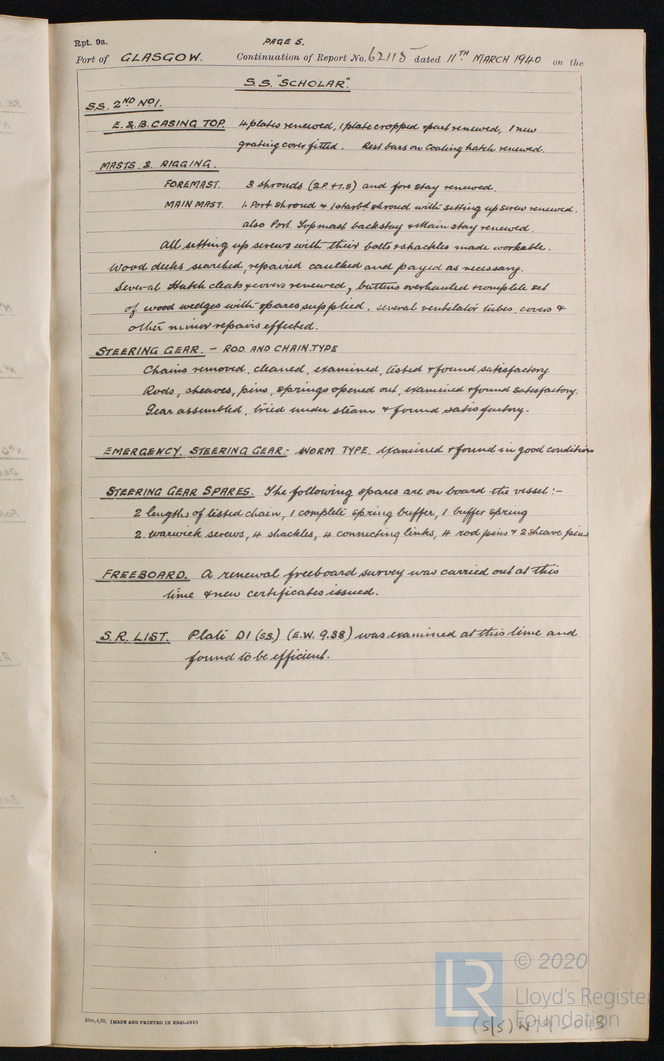 Rpt. 9a.
PAGE 5.
Port of GLASGOW. Continuation of Report No. 62115 dated 11TH MARCH 1940 on the
S.S. "SCHOLAR".
S.S. 2ND No 1.
E. & B. CASING TOP 4 plates renewed, 1 plate cropped & part renewed, 1 new
grating cover fitted. Rest bars on Coaling hatch renewed.
MASTS & RIGGING.
FOREMAST. 3 shrouds (2.P. + 1.S) and fore stay renewed.
MAIN MAST. 1. Port shroud & 1 starbd shroud with setting up screw renewed.
also Port Topmast backstay & Main stay renewed.
All setting up screws with their bolts & shackles made workable.
Wood decks searched, repaired caulked and payed as necessary.
Several Hatch cleats & covers renewed, battens overhauled & complete set
of wood wedges with spares supplied. several ventilator tubes, covers &
other minor repairs effected.
STEERING GEAR. - ROD AND CHAIN TYPE
Chains removed, cleaned, examined, tested & found satisfactory.
Rods, sheaves, pins, springs opened out, examined & found satisfactory.
Gear assembled, tried under steam & found satisfactory.
EMERGENCY. STEERING GEAR:- WORM TYPE. examined & found in good condition
STEERING GEAR SPARES. The following spares are on board the vessel:-
2 lengths of tested chain, 1 complete spring buffer, 1 buffer spring
2. warwick screws, 4 shackles, 4 connecting links, 4 rod pins & 2 sheave pins
FREEBOARD. A renewal freeboard survey was carried out at this
time & new certificates issued.
S.R. LIST. Plate D1 (SS.) (E.W. 9.38) was examined at this time and
found to be efficient.
(MADE AND PRINTED IN ENGLAND)
© 2020
LR
Lloyd's Register
Foundation